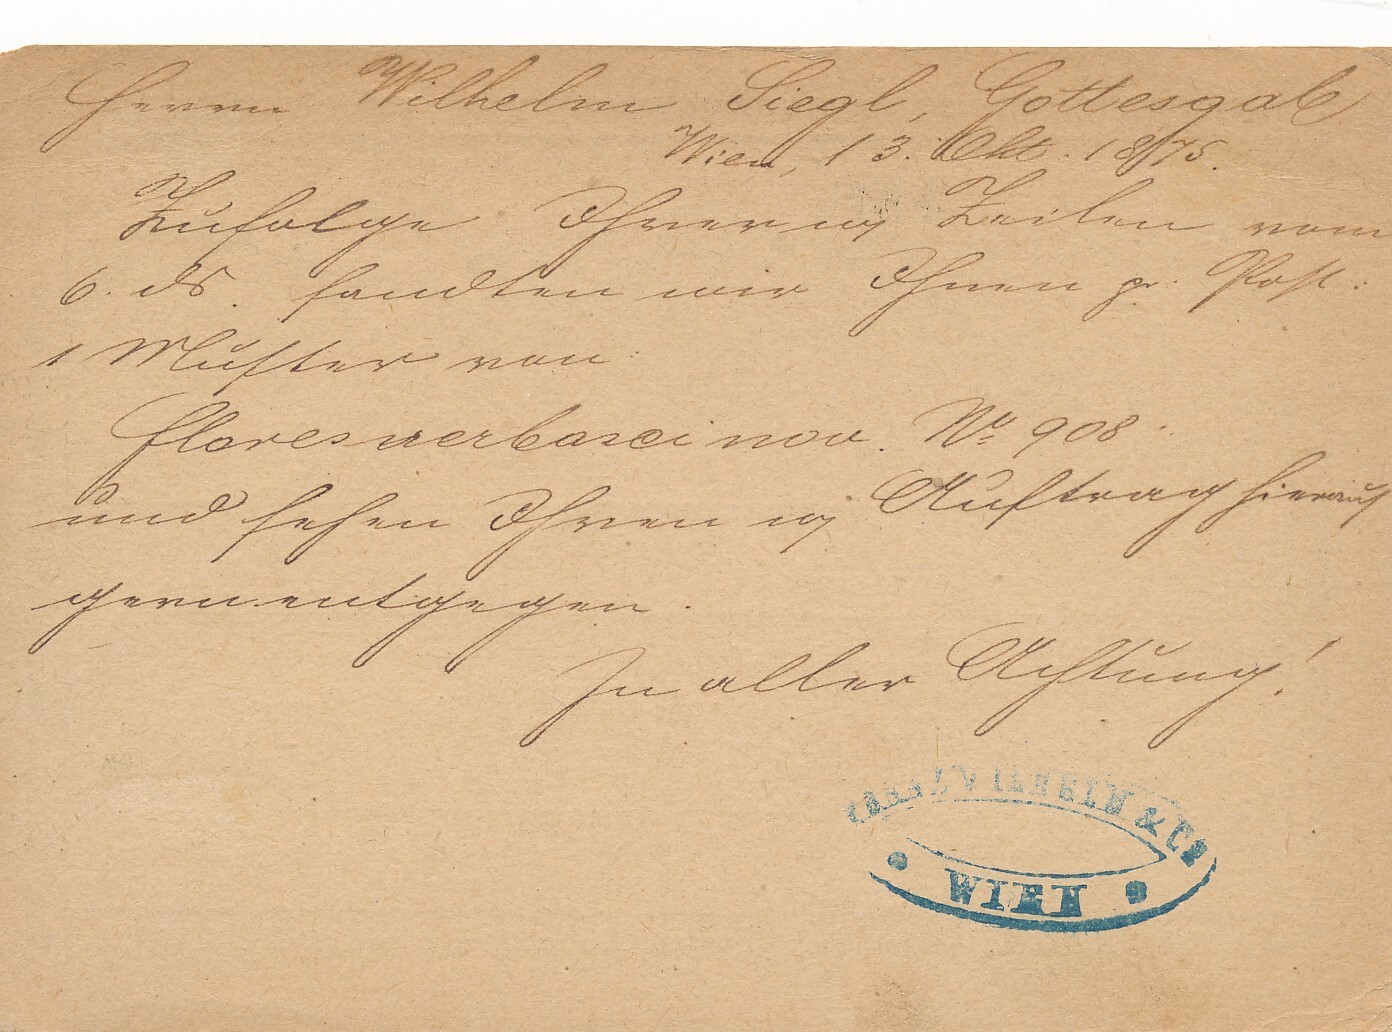 Herrn Wilhelm Siegl, Gottesgab
Wien, 13. Okt. 1875.
Zufolge Ihrer Zeilen vom
6. ds. sandten wir Ihnen pr. Post.
1 Muster von
flores verbasci nov. No. 908.
und sehen Ihren Auftrag hierauf
gern entgegen.
In aller Achtung!
WILHELM & Co
WIEN